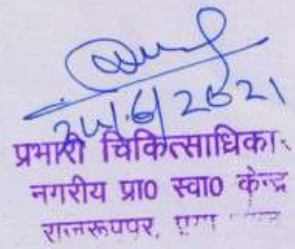 24/6/2021
प्रभारी चिकित्साधिका
नगरीय प्रा0 स्वा0 केन्द्र
राजरूपपुर,